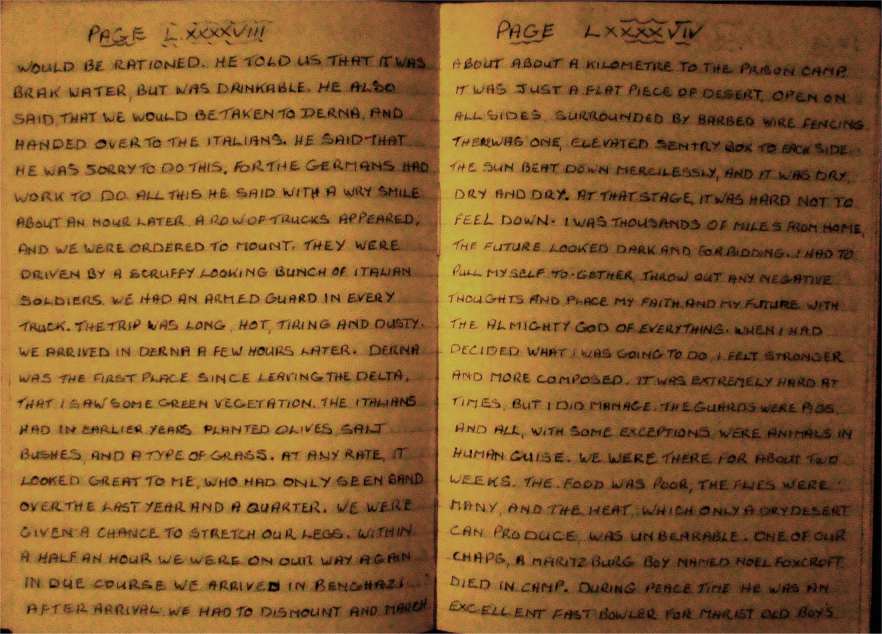 PAGE LXXXXVIII
WOULD BE RATIONED. HE TOLD US THAT IT WAS
BRAK WATER, BUT WAS DRINKABLE. HE ALSO
SAID THAT WE WOULD BE TAKEN TO DERNA, AND
HANDED OVER TO THE ITALIANS. HE SAID THAT
HE WAS SORRY TO DO THIS, FOR THE GERMANS HAD
WORK TO DO. ALL THIS HE SAID WITH A WRY SMILE
ABOUT AN HOUR LATER A ROW OF TRUCKS APPEARED,
AND WE WERE ORDERED TO MOUNT. THEY WERE
DRIVEN BY A SCRUFFY LOOKING BUNCH OF ITALIAN
SOLDIERS. WE HAD AN ARMED GUARD IN EVERY
TRUCK. THE TRIP WAS LONG, HOT, TIRING AND DUSTY.
WE ARRIVED IN DERNA A FEW HOURS LATER. DERNA
WAS THE FIRST PLACE SINCE LEAVING THE DELTA,
THAT I SAW SOME GREEN VEGETATION. THE ITALIANS
HAD IN EARLIER YEARS PLANTED OLIVES, SALT
BUSHES, AND A TYPE OF GRASS. AT ANY RATE, IT
LOOKED GREAT TO ME, WHO HAD ONLY SEEN SAND
OVER THE LAST YEAR AND A QUARTER. WE WERE
GIVEN A CHANCE TO STRETCH OUR LEGS. WITHIN
A HALF AN HOUR WE WERE ON OUR WAY AGAIN
IN DUE COURSE WE ARRIVED IN BENGHAZI
AFTER ARRIVAL WE HAD TO DISMOUNT AND MARCH
PAGE LXXXXVIV
ABOUT ABOUT A KILOMETRE TO THE PRISON CAMP.
IT WAS JUST A FLAT PIECE OF DESERT, OPEN ON
ALL SIDES, SURROUNDED BY BARBED WIRE FENCING
THERWAS ONE, ELEVATED SENTRY BOX TO EACH SIDE.
THE SUN BEAT DOWN MERCILESSLY, AND IT WAS DRY,
DRY AND DRY. AT THAT STAGE, IT WAS HARD NOT TO
FEEL DOWN. I WAS THOUSANDS OF MILES FROM HOME,
THE FUTURE LOOKED DARK AND FORBIDDING. I HAD TO
PULL MYSELF TO-GETHER, THROW OUT ANY NEGATIVE
THOUGHTS AND PLACE MY FAITH AND MY FUTURE WITH
THE ALMIGHTY GOD OF EVERYTHING. WHEN I HAD
DECIDED WHAT I WAS GOING TO DO, I FELT STRONGER
AND MORE COMPOSED. IT WAS EXTREMELY HARD AT
TIMES, BUT I DID MANAGE. THE GUARDS WERE PIGS,
AND ALL, WITH SOME EXCEPTIONS WERE ANIMALS IN
HUMAN GUISE. WE WERE THERE FOR ABOUT TWO
WEEKS. THE FOOD WAS POOR, THE FLIES WERE
MANY, AND THE HEAT, WHICH ONLY A DRY DESERT
CAN PRODUCE, WAS UNBEARABLE. ONE OF OUR
CHAPS, A MARITZBURG BOY NAMED NOEL FOXCROFT
DIED IN CAMP. DURING PEACE TIME HE WAS AN
EXCELLENT FAST BOWLER FOR MARIST OLD BOYS.